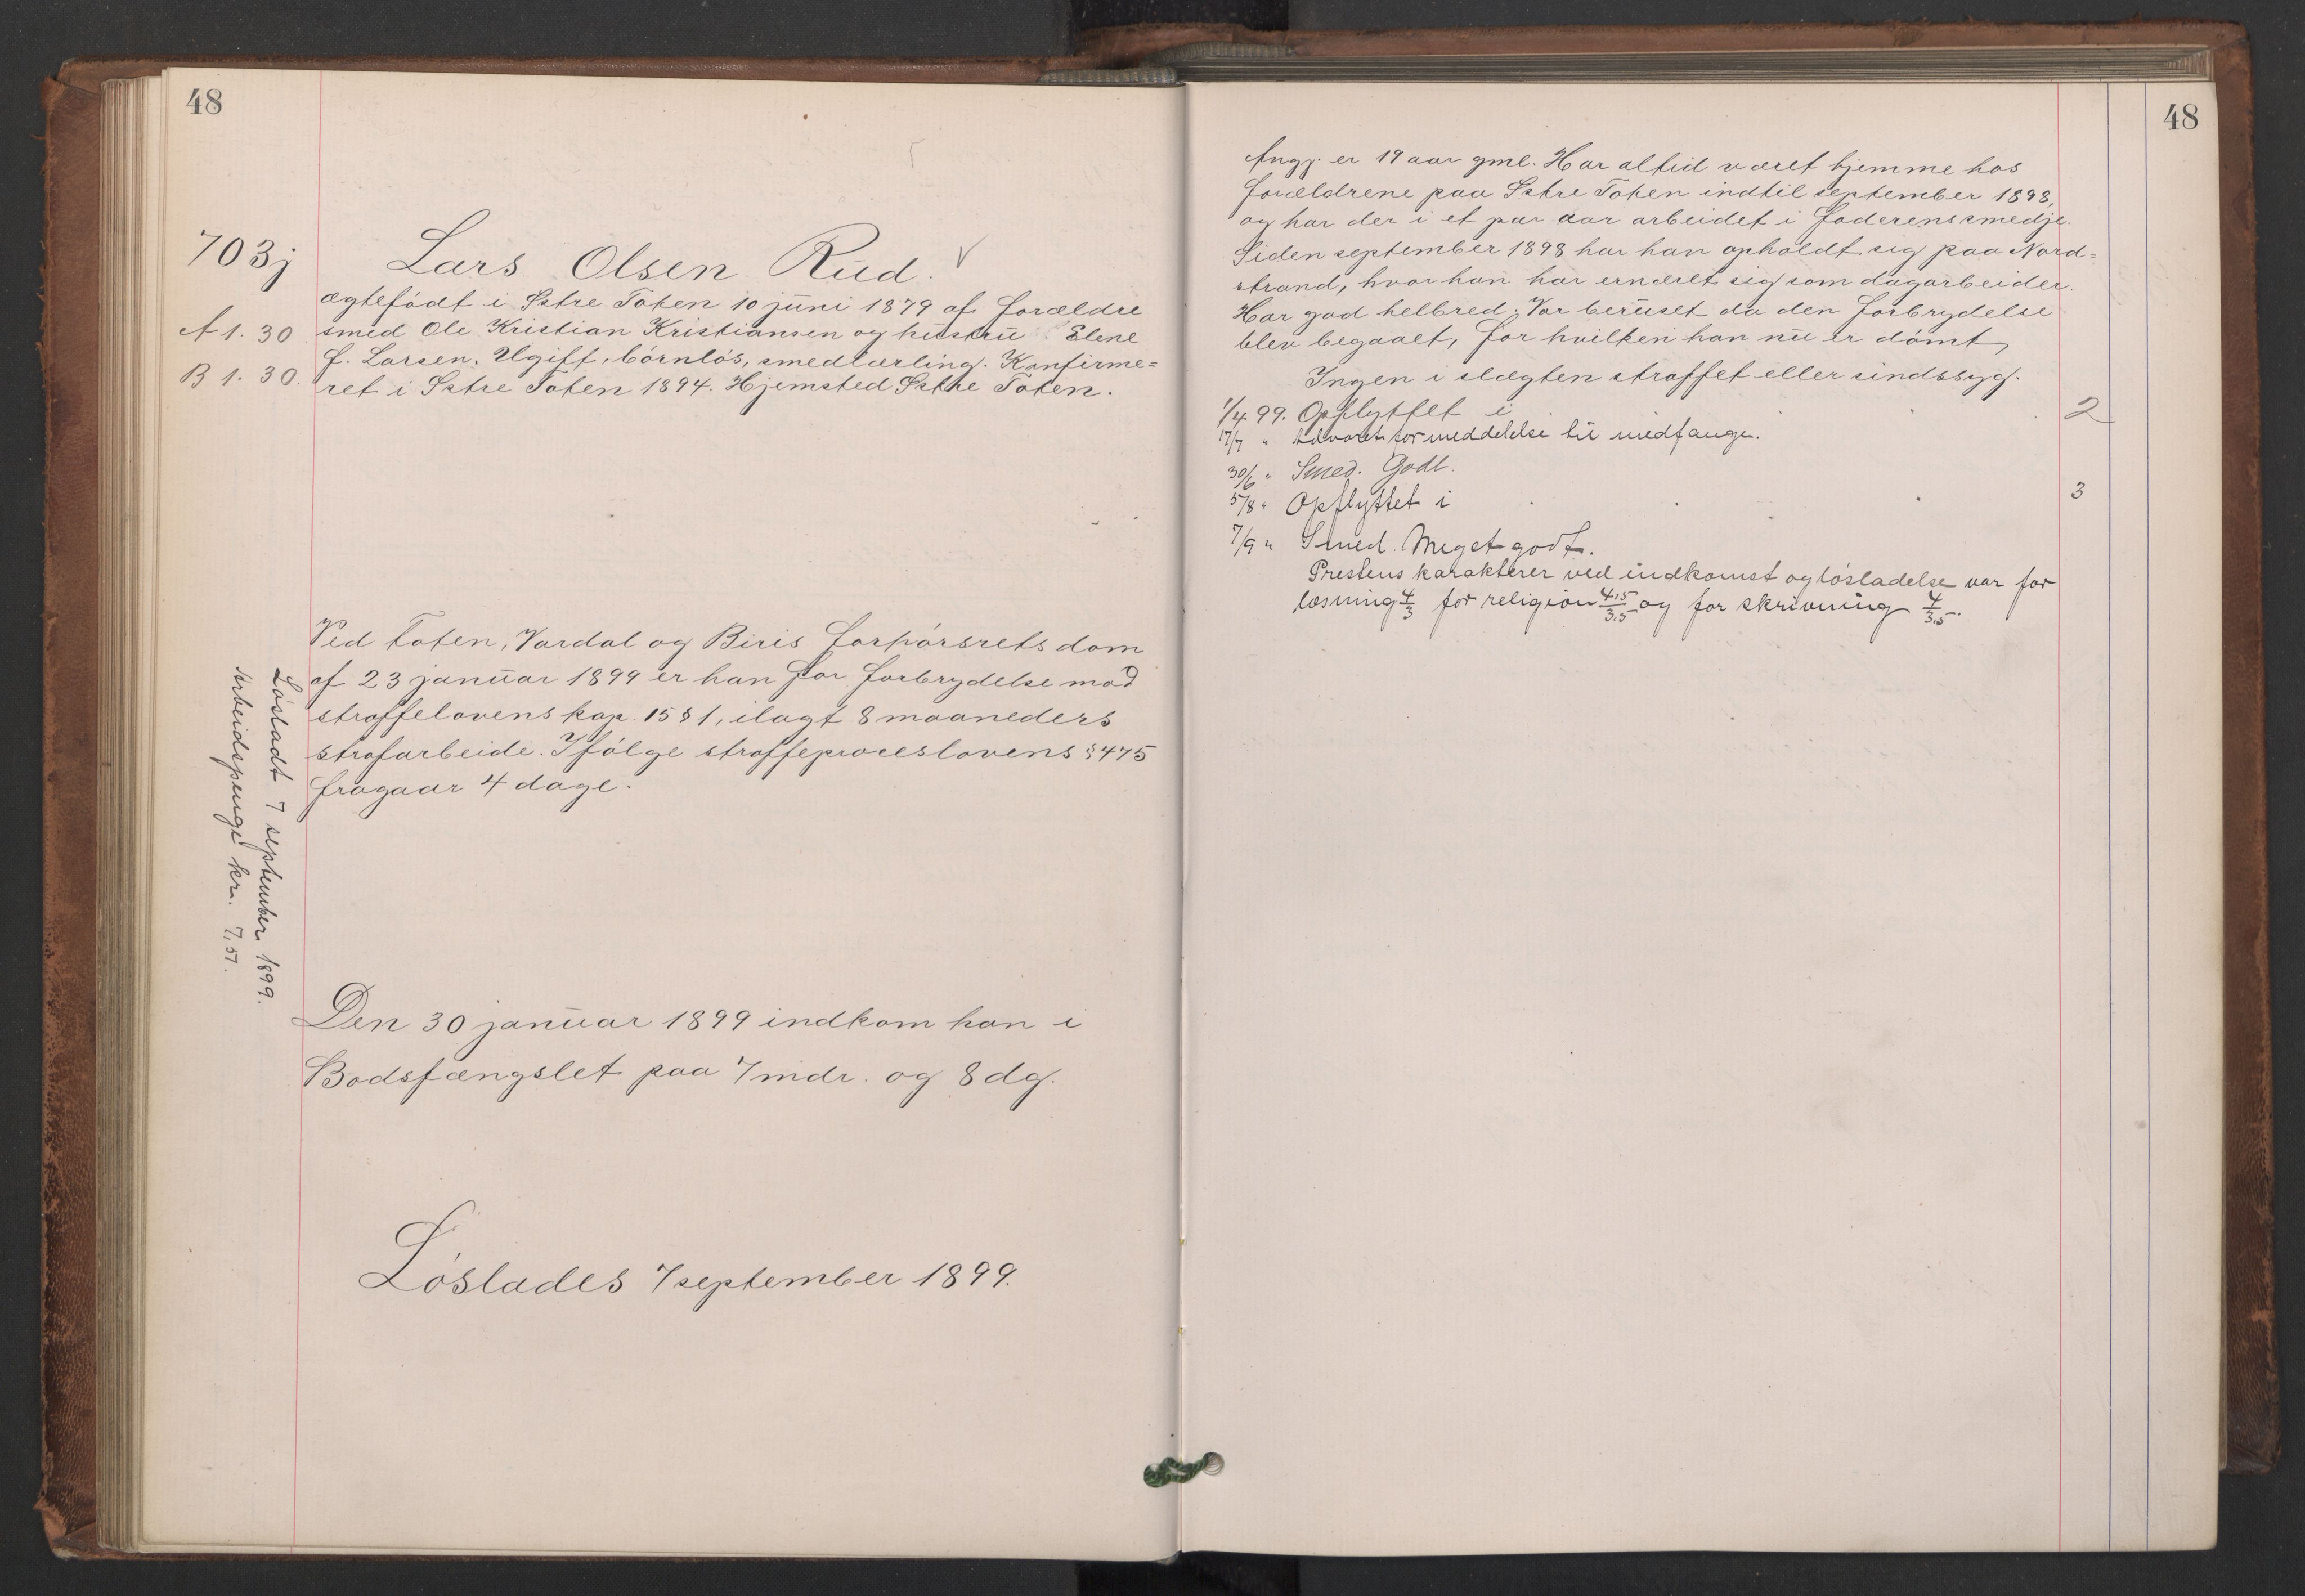 48
703j
Lars Olsen Rud.
A 1. 30
B 1. 30.
ægtefødt i Østre Toten 10 juni 1879 af forældre
smed Ole Kristian Kristiansen og hustru Elene
f. Larsen. Ugift, børnløs, smedlærling. Konfirme=
ret i Østre Toten 1894. Hjemsted Østre Toten.
Ved Toten, Vardal og Biris forhørsrets dom
af 23 januar 1899 er han for forbrydelse mod
straffelovens kap. 15 § 1, ilagt 8 maaneders
strafarbeide. Ifølge straffeproceslovens § 475
fragaar 4 dage.
Løsladt 7 september 1899.
Arbeidspenge kr. 7,51.
Den 30 januar 1899 indkom han i
Bodsfængslet paa 7 mdr. og 8 dg.
Løslades 7 september 1899.
48
Angj. er 19 aar gml. Har altid været hjemme hos
forældrene paa Østre Toten indtil september 1898,
og har der i et par aar arbeidet i faderens smedje.
Siden september 1898 har han opholdt sig paa Nord=
strand, hvor han har ernæret sig som dagarbeider.
Har god helbred. Var beruset da den forbrydelse
blev begaaet, for hvilken han nu er dømt,
Ingen i slægten straffet eller sindssyg.
1/4 99. Opflyttet i 2
17/7 " Advaret for meddelelse til medfange.
30/6 " Smed. Godt.
5/8 " Opflyttet i 3
7/9 " Smed. Meget godt.
Prestens karakterer ved indkomst og løsladelse var for
læsning 4/3 for religion 4,5/3,5 og for skrivning 4/3,5.